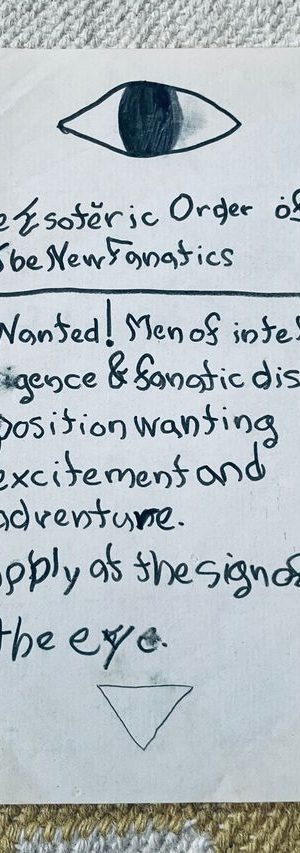 e Esoteric Order of
The New Fanatics
Wanted! Men of intel
igence & fanatic dis
position wanting
excitement and
adventure.
pply at the sign of
the eye.